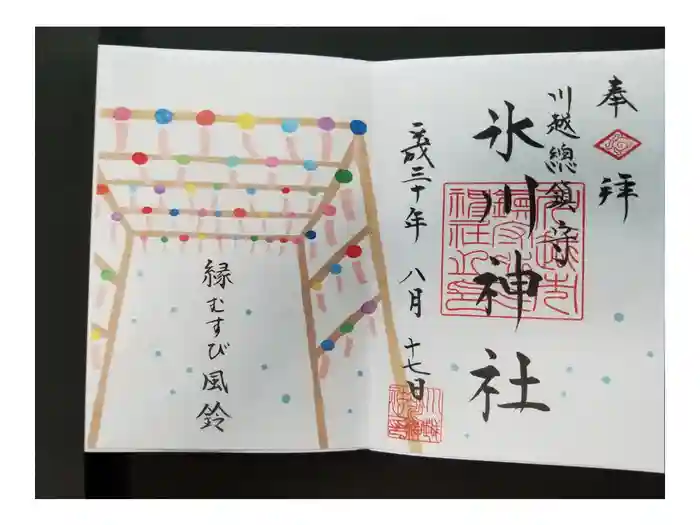 奉拝
川越總鎮守
氷川神社
平成三十年 八月 十七日
縁むすび風鈴